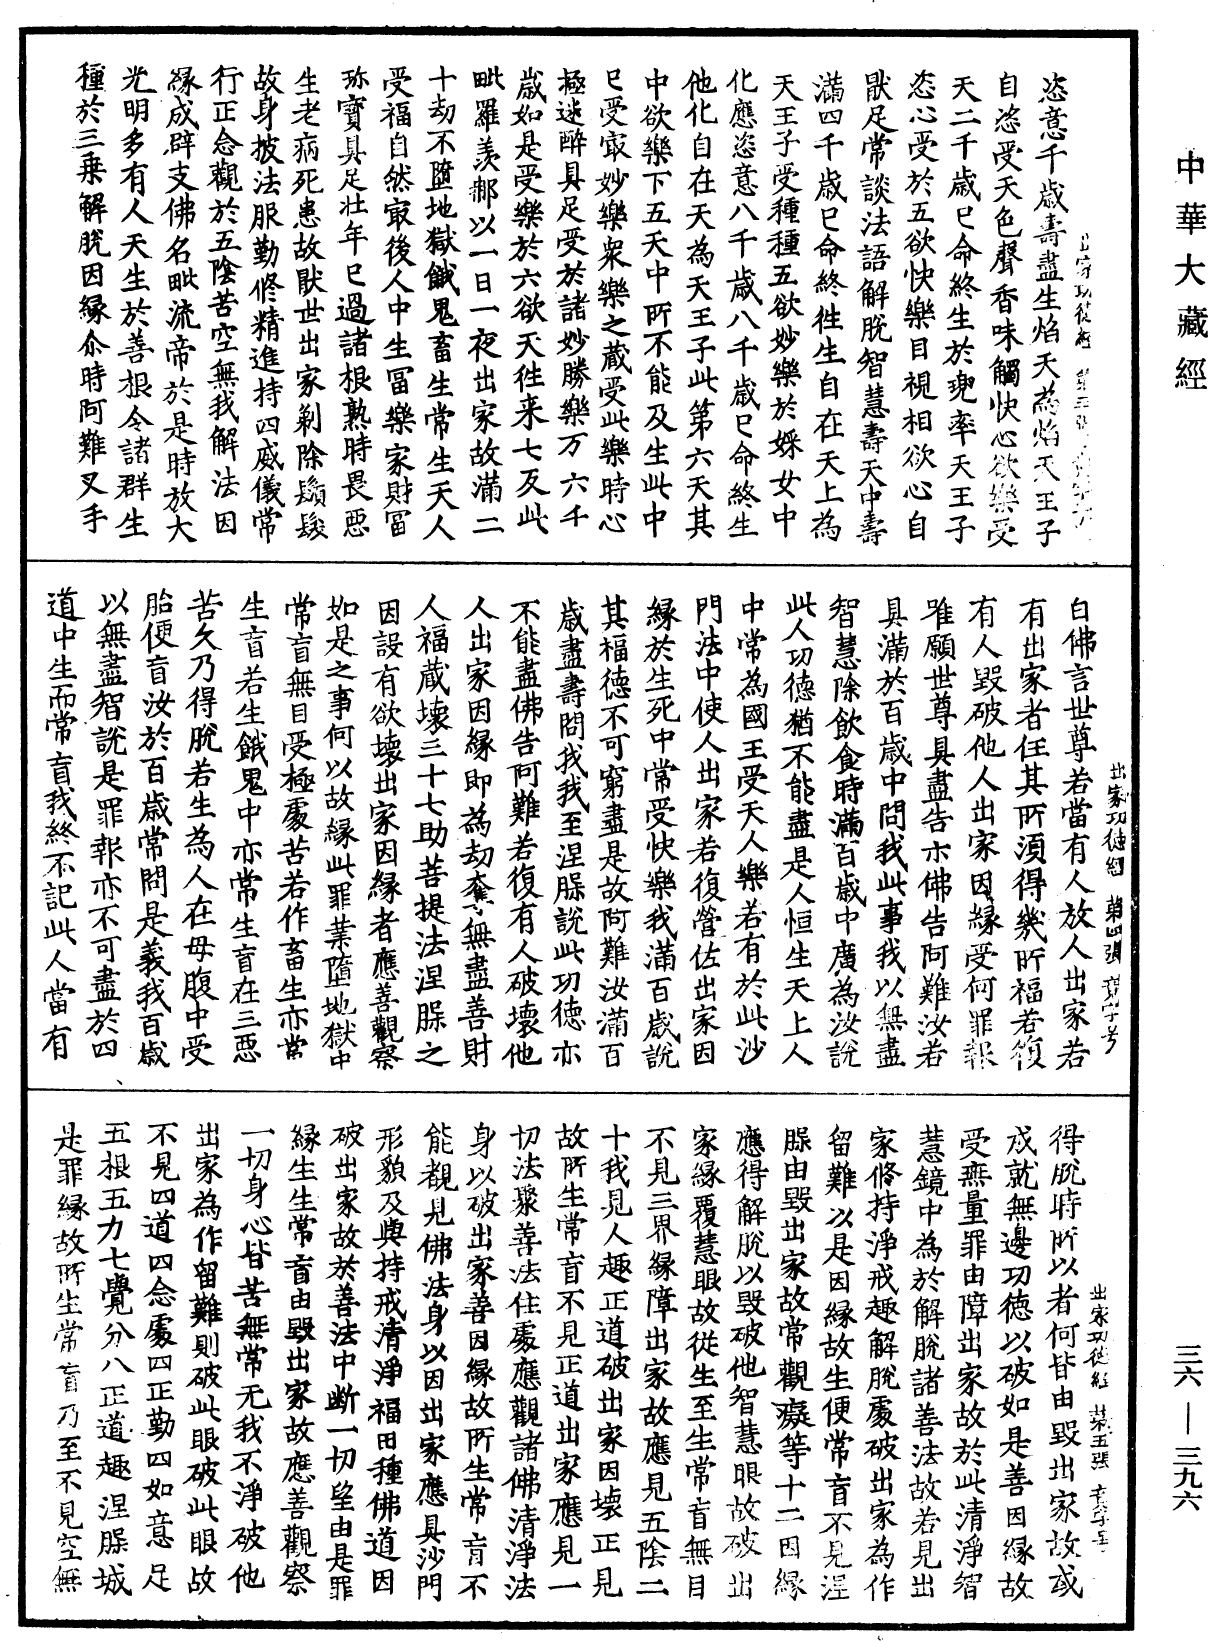 中華大藏經
恣意千歳壽盡生焰天為焰天王子
自恣受天色聲香味觸快心欲樂受
天二千歳已命終生於兜率天王子
恣心受於五欲快樂目視相欲心自
猒足常談法語解脫智慧壽天中壽
滿四千歳已命終徃生自在天上為
天王子受種種五欲妙樂於婇女中
化應恣意八千歳八千歳已命終生
他化自在天為天王子此第六天其
中欲樂下五天中所不能及生此中
已受㝡妙樂衆樂之蔵受此樂時心
極迷醉具足受於諸妙勝樂万六千
歳如是受樂於六欲天徃来七反此
毗羅羡那以一日一夜出家故滿二
十劫不墮地獄餓鬼畜生常生天人
受福自然㝡後人中生冨樂家財冨
珎寶具足壯年已過諸根熟時畏惡
生老病死患故猒世出家剃除鬚髮
故身披法服勤修精進持四威儀常
行正念觀於五陰苦空無我解法因
緣成辟支佛名毗流帝於是時放大
光明多有人天生於善根令諸群生
種於三乗解脫因縁尒時阿難叉手
出家功德經　第四張　竟字号
白佛言世尊若當有人放人出家若
有出家者任其所湏得幾所福若復
有人毀破他人出家因縁受何罪報
唯願世尊具盡告示佛告阿難汝若
具滿於百歳中問我此事我以無盡
智慧除飲食時滿百歳中廣為汝說
此人功德猶不能盡是人恒生天上人
中常為國王受天人樂若有於此沙
門法中使人出家若復營佐出家因
縁於生死中常受快樂我滿百歳說
其福德不可窮盡是故阿難汝滿百
歳盡壽問我我至涅槃說此功德亦
不能盡佛告阿難若復有人破壞他
人出家因縁即為劫奪無盡善財
人福蔵壞三十七助菩提法涅槃之
因設有欲壞出家因縁者應善觀察
如是之事何以故縁此罪業墮地獄中
常盲無目受極處苦若作畜生亦常
生盲若生餓鬼中亦常生盲在三惡
苦久乃得脫若生為人在母腹中受
胎便盲汝於百歳常問是義我百歳
以無盡智說是罪報亦不可盡於四
道中生而常盲我終不記此人當有
出家功徳經　第五張　竟字号
得脫時所以者何皆由毀出家故或
成就無邊功德以破如是善因縁故
受無量罪由障出家故於此清淨智
慧鏡中為於解脫諸善法故若見出
家修持淨戒趣解脫處破出家為作
留難以是因縁故生便常盲不見涅
槃由毀出家故常觀癡等十二因縁
應得解脫以毀破他智慧眼故破出
家縁覆慧眼故從生至生常盲無目
不見三界縁障出家故應見五陰二
十我見人趣正道破出家因壞正見
故所生常盲不見正道出家應見一
切法聚善法住處應觀諸佛清淨法
身以破出家善因縁故所生常盲不
能覩見佛法身以因出家應具沙門
形貌及與持戒清淨福田種佛道因
破出家故於善法中斷一切望由是罪
縁生生常盲由毀出家故應善觀察
一切身心皆苦無常无我不淨破他
出家為作留難則破此眼破此眼故
不見四道四念處四正勤四如意足
五根五力七覺分八正道趣涅槃城
是罪縁故所生常盲乃至不見空無
三六—三九六